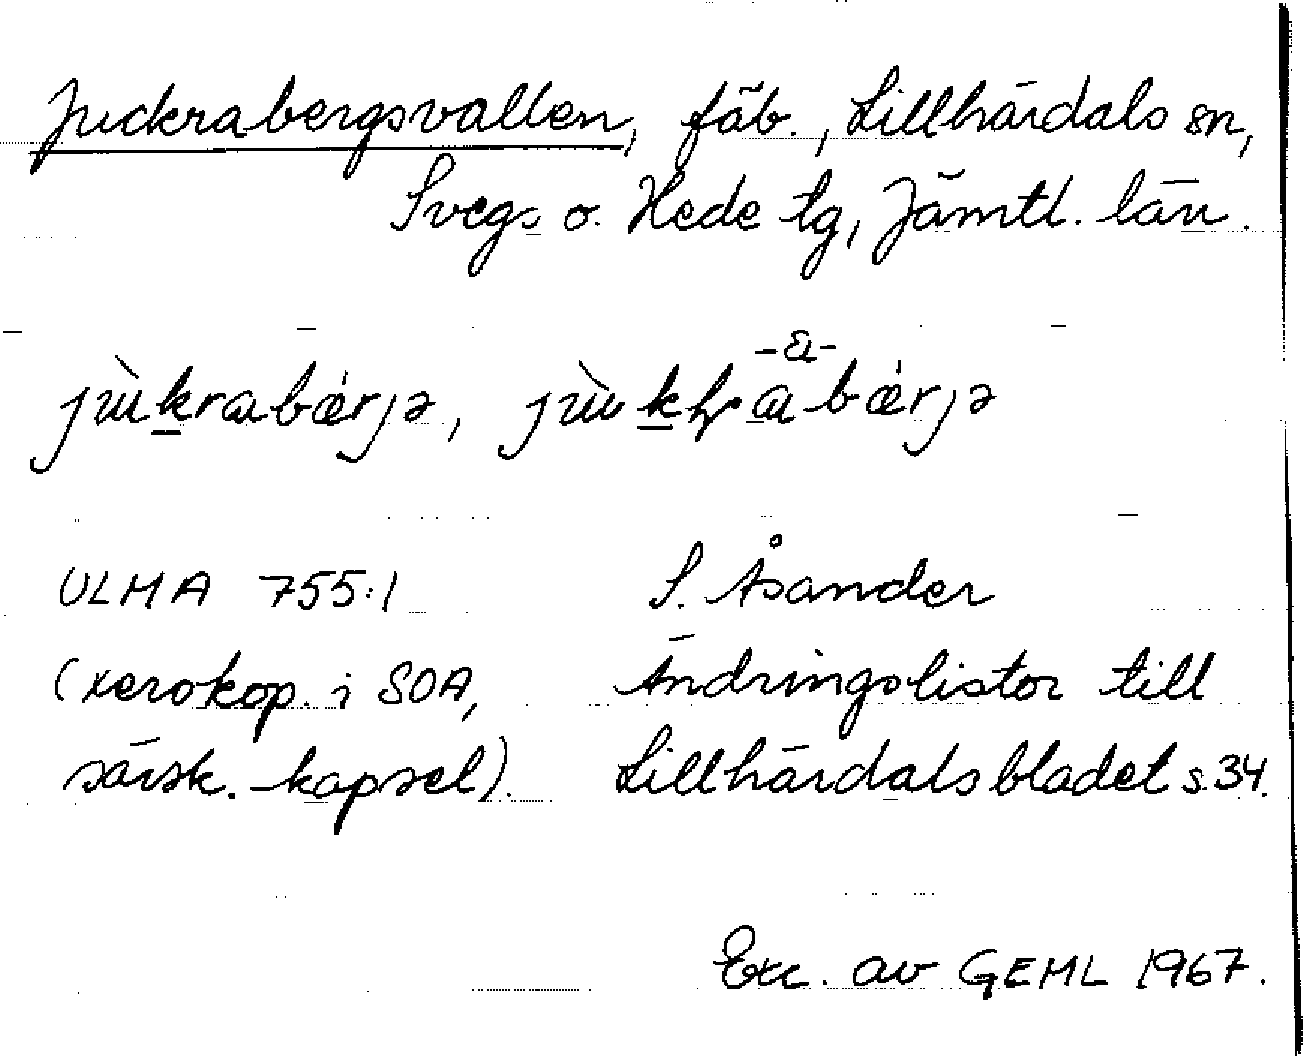 Juckrabergsvallen, fäb., Lillhärdals sn,
Svegs o. Hede tg, Jämtl. län.
-a-
jùkrabǽrjə, jùkhrabǽrjə
ULMA 755:1 S. Åsander
(xerokop. i SOA, Ändringslistor till
särsk. kapsel). Lillhärdalsbladet s.34.
Exc. av GEML 1967.